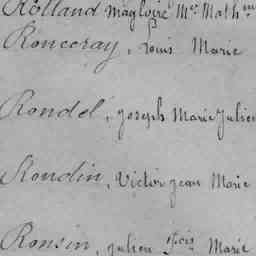 Rolland Magloire Mce Math
Ronceray, Louis Marie
Rondel, Joseph Marie Julien
Rondin, Victor Jean Marie
Ronsin, Julien Marie